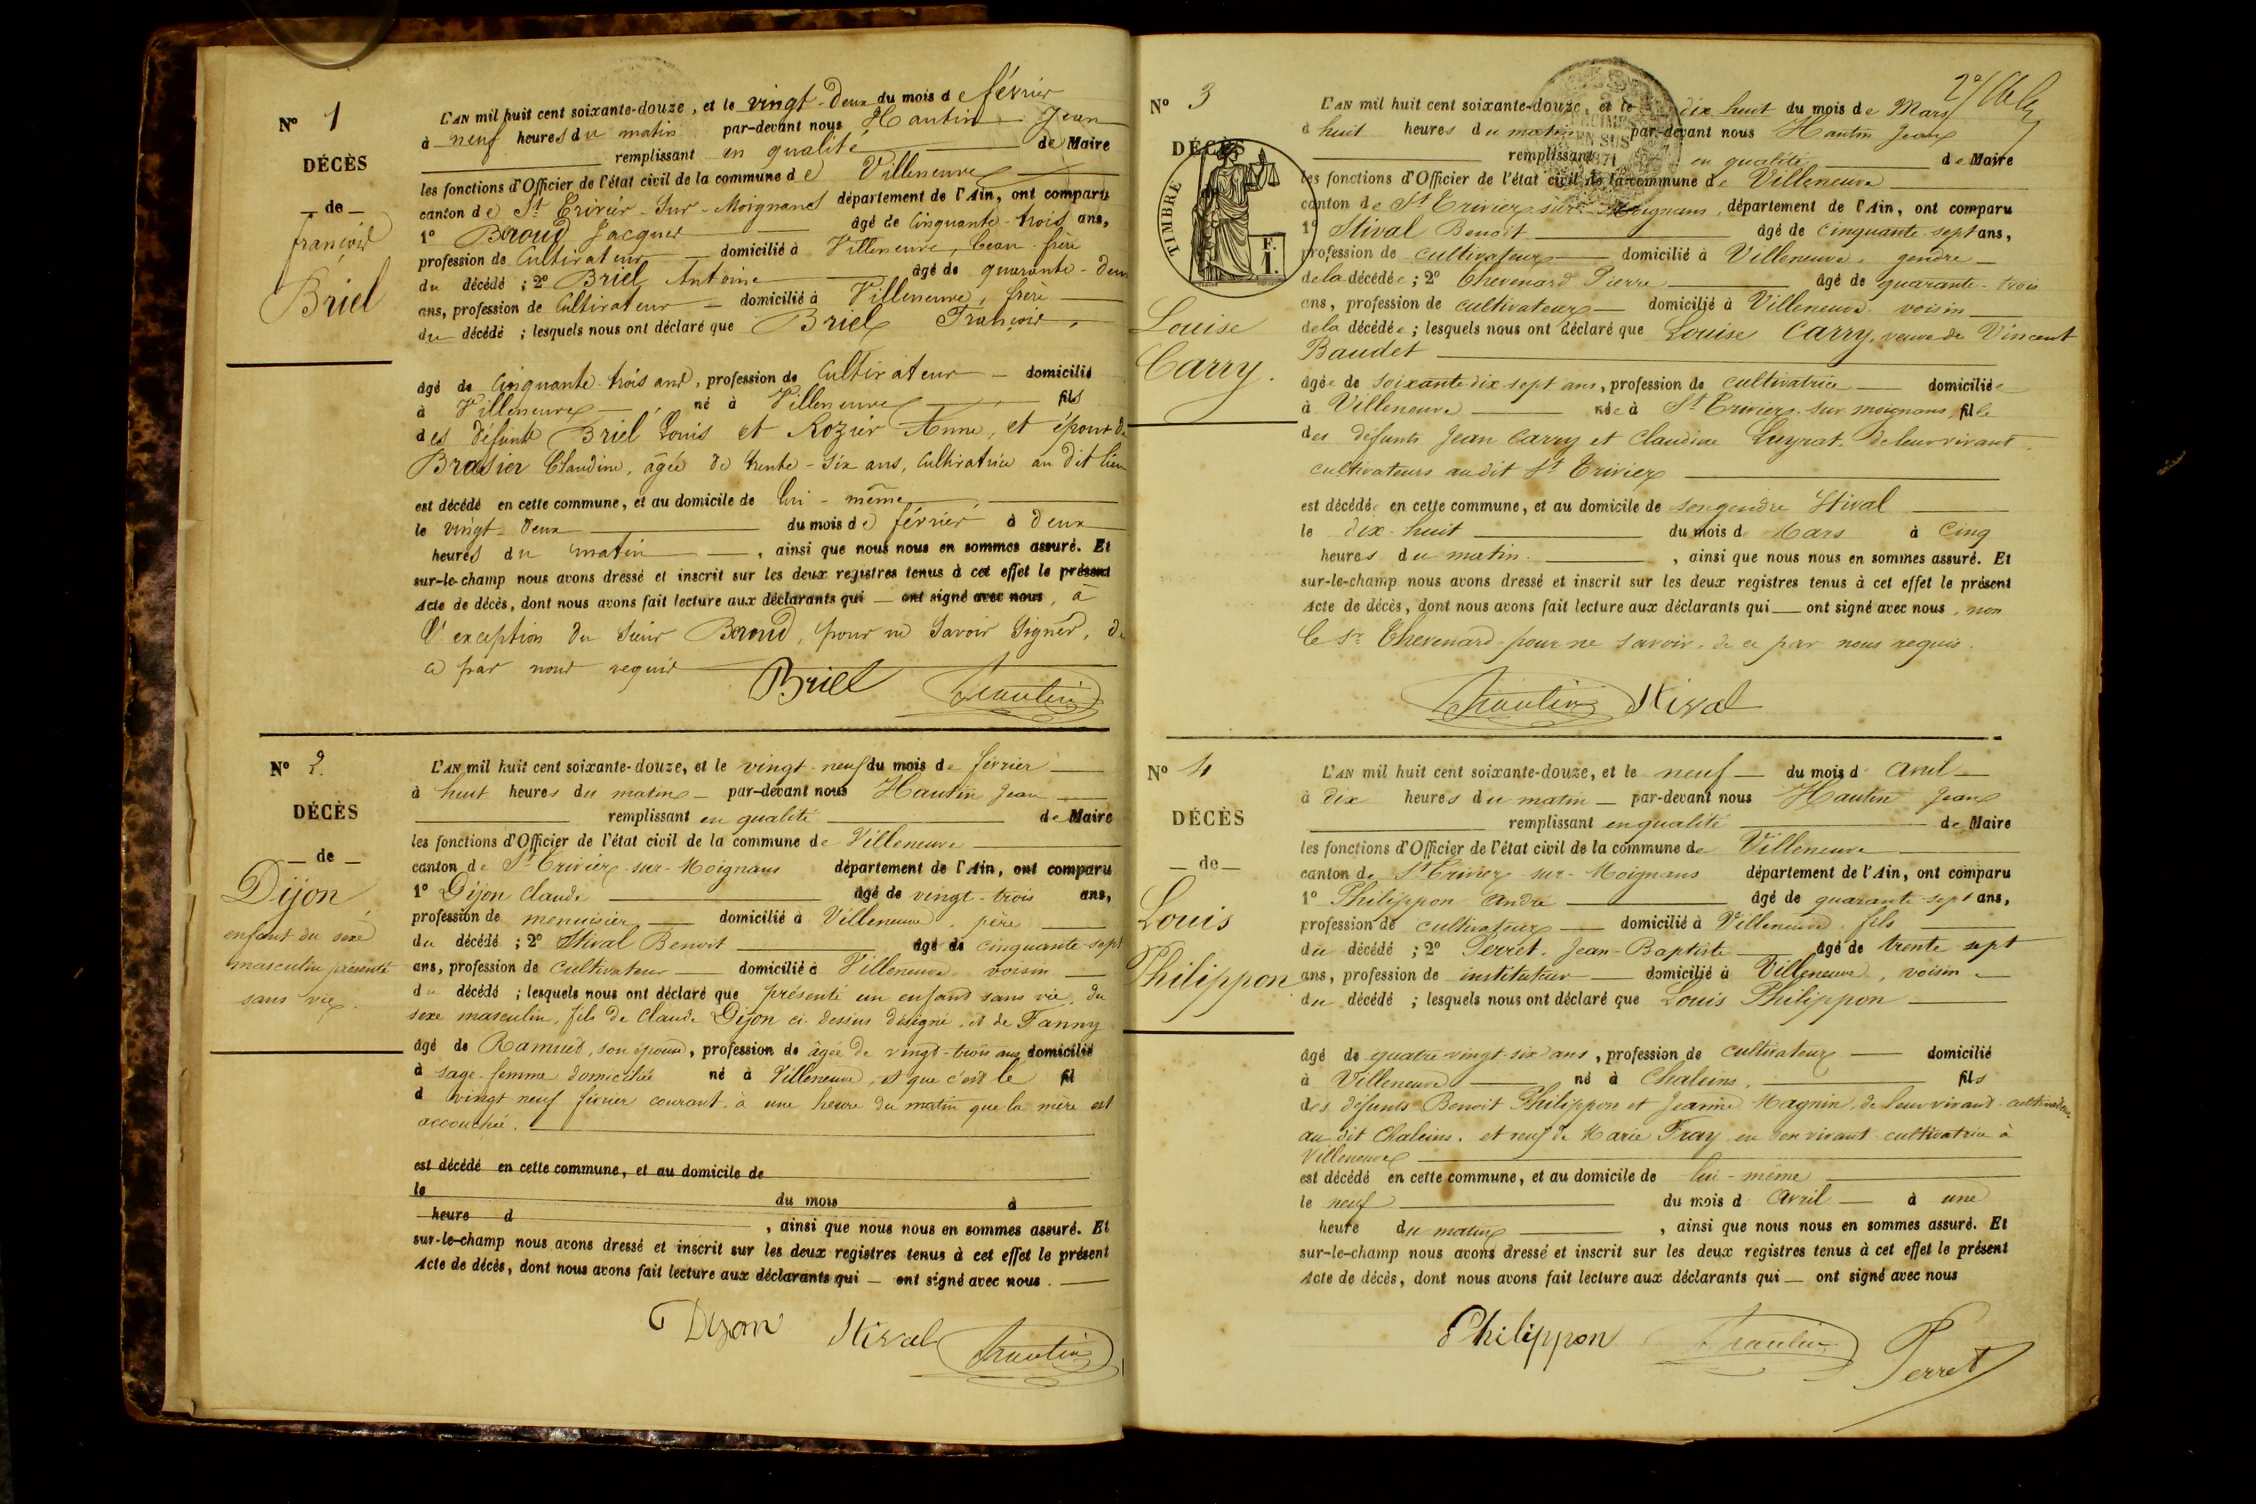 N° 1
DÉCÈS
de
françois
Briel
L'AN mil huit cent soixante-douze, et le vingt-deux du mois de février
à neuf heures du matin par-devant nous Hautin Jean
remplissant en qualité de Maire
les fonctions d'Officier de l'état civil de la commune de Villeneuve
canton de St Trivier-Sur-Moignans département de l'Ain, ont comparu
1° Beroud Jacques âgé de cinquante-trois ans,
profession de Cultivateur domicilié à Villeneuve, beau-frère
du décédé ; 2° Briel Antoine âgé de quarante-deux
ans, profession de Cultivateur domicilié à Villeneuve, frère
du décédé ; lesquels nous ont déclaré que Briel François,
âgé de cinquante-trois ans, profession de Cultivateur domicilié
à Villeneuve, né à Villeneuve fils
des défunts Briel Louis et Rozier Anne, et époux de
Brasier Claudine, âgée de trente-six ans, Cultivatrice au dit lieu
est décédé en cette commune, et au domicile de lui-même
le vingt-deux du mois de février à deux
heures du matin, ainsi que nous nous en sommes assuré. Et
sur-le-champ nous avons dressé et inscrit sur les deux registres tenus à cet effet le présent
Acte de décès, dont nous avons fait lecture aux déclarants qui ont signé avec nous, à
l'exception du Sieur Beroud, pour ne Savoir Signer, de
ce par nous requis
Briel Hautin
N° 2.
DÉCÈS
de
Dijon,
enfant du sexe
masculin présenté
sans vie.
L'AN mil huit cent soixante-douze, et le vingt-neuf du mois de février
à huit heures du matin par-devant nous Hautin Jean
remplissant en qualité de Maire
les fonctions d'Officier de l'état civil de la commune de Villeneuve
canton de St Trivier-sur-Moignans département de l'Ain, ont comparu
1° Dijon claude âgé de vingt-trois ans,
profession de menuisier domicilié à Villeneuve, père
du décédé ; 2° Stival Benoit âgé de cinquante-sept
ans, profession de cultivateur domicilié à Villeneuve voisin
du décédé ; lesquels nous ont déclaré que présenté un enfant sans vie, du
sexe masculin, fils de Claude Dijon ci-dessus désigné, et de Fanny
âgé de Ramuet, son épouse, profession de âgée de vingt-trois ans domicilié
à sage-femme domiciliée né à Villeneuve, et que c'est le fil
d vingt neuf février courant à une heure du matin que la mère est
accouchée.
est décédé en cette commune, et au domicile de
le du mois à
heure d , ainsi que nous nous en sommes assuré. Et
sur-le-champ nous avons dressé et inscrit sur les deux registres tenus à cet effet le présent
Acte de décès, dont nous avons fait lecture aux déclarants qui ont signé avec nous.
Dijon Stival Hautin
2e
N° 3
DÉCÈS
TIMBRE
F.
1.
Louise
Carry.
L'AN mil huit cent soixante-douze, et le dix huit du mois de Mars
à huit heures du matin par-devant nous Hautin Jean
remplissant en qualité de Maire
les fonctions d'Officier de l'état civil de la commune de Villeneuve
canton de St Trivier sur Moignans, département de l'Ain, ont comparu
1° Stival Benoit âgé de cinquante-sept ans,
profession de cultivateur domicilié à Villeneuve, gendre
de la décédée ; 2° Chevenard Pierre âgé de quarante-trois
ans, profession de cultivateur domicilié à Villeneuve voisin
de la décédée ; lesquels nous ont déclaré que Louise Carry, veuve de Vincent
Baudet
âgée de soixante dix-sept ans, profession de cultivatrice domiciliée
à Villeneuve née à St Trivier sur moignans, fille
des défunts Jean Carry et Claudine Luyrat, de leur vivant
cultivateurs au dit St Trivier
est décédée en cette commune, et au domicile de son gendre Stival
le dix-huit du mois d Mars à cinq
heures du matin, ainsi que nous nous en sommes assuré. Et
sur-le-champ nous avons dressé et inscrit sur les deux registres tenus à cet effet le présent
Acte de décès, dont nous avons fait lecture aux déclarants qui ont signé avec nous, non
le Sr Chevenard pour ne savoir, de ce par nous requis.
Hautin Stival
N° 4
DÉCÈS
de
Louis
Philippon
L'AN mil huit cent soixante-douze, et le neuf du mois d avril
à dix heures du matin par-devant nous Hautin Jean
remplissant en qualité de Maire
les fonctions d'Officier de l'état civil de la commune de Villeneuve
canton de St Trivier-sur-Moignans département de l'Ain, ont comparu
1° Philippon André âgé de quarante sept ans,
profession de cultivateur domicilié à Villeneuve, fils
du décédé ; 2° Perret Jean-Baptiste âgé de trente sept
ans, profession de instituteur domicilié à Villeneuve, voisin
du décédé ; lesquels nous ont déclaré que Louis Philippon
âgé de quatre vingt-six ans, profession de cultivateur domicilié
à Villeneuve né à Chaleins, fils
des défunts Benoit Philippon et Jeanne Magnin, de leur vivant cultivateurs
au dit Chaleins, et veuf de Marie Fray en son vivant cultivatrice à
Villeneuve
est décédé en cette commune, et au domicile de lui-même
le neuf du mois d avril à une
heure du matin, ainsi que nous nous en sommes assuré. Et
sur-le-champ nous avons dressé et inscrit sur les deux registres tenus à cet effet le présent
Acte de décès, dont nous avons fait lecture aux déclarants qui ont signé avec nous
Philippon Hautin Perret